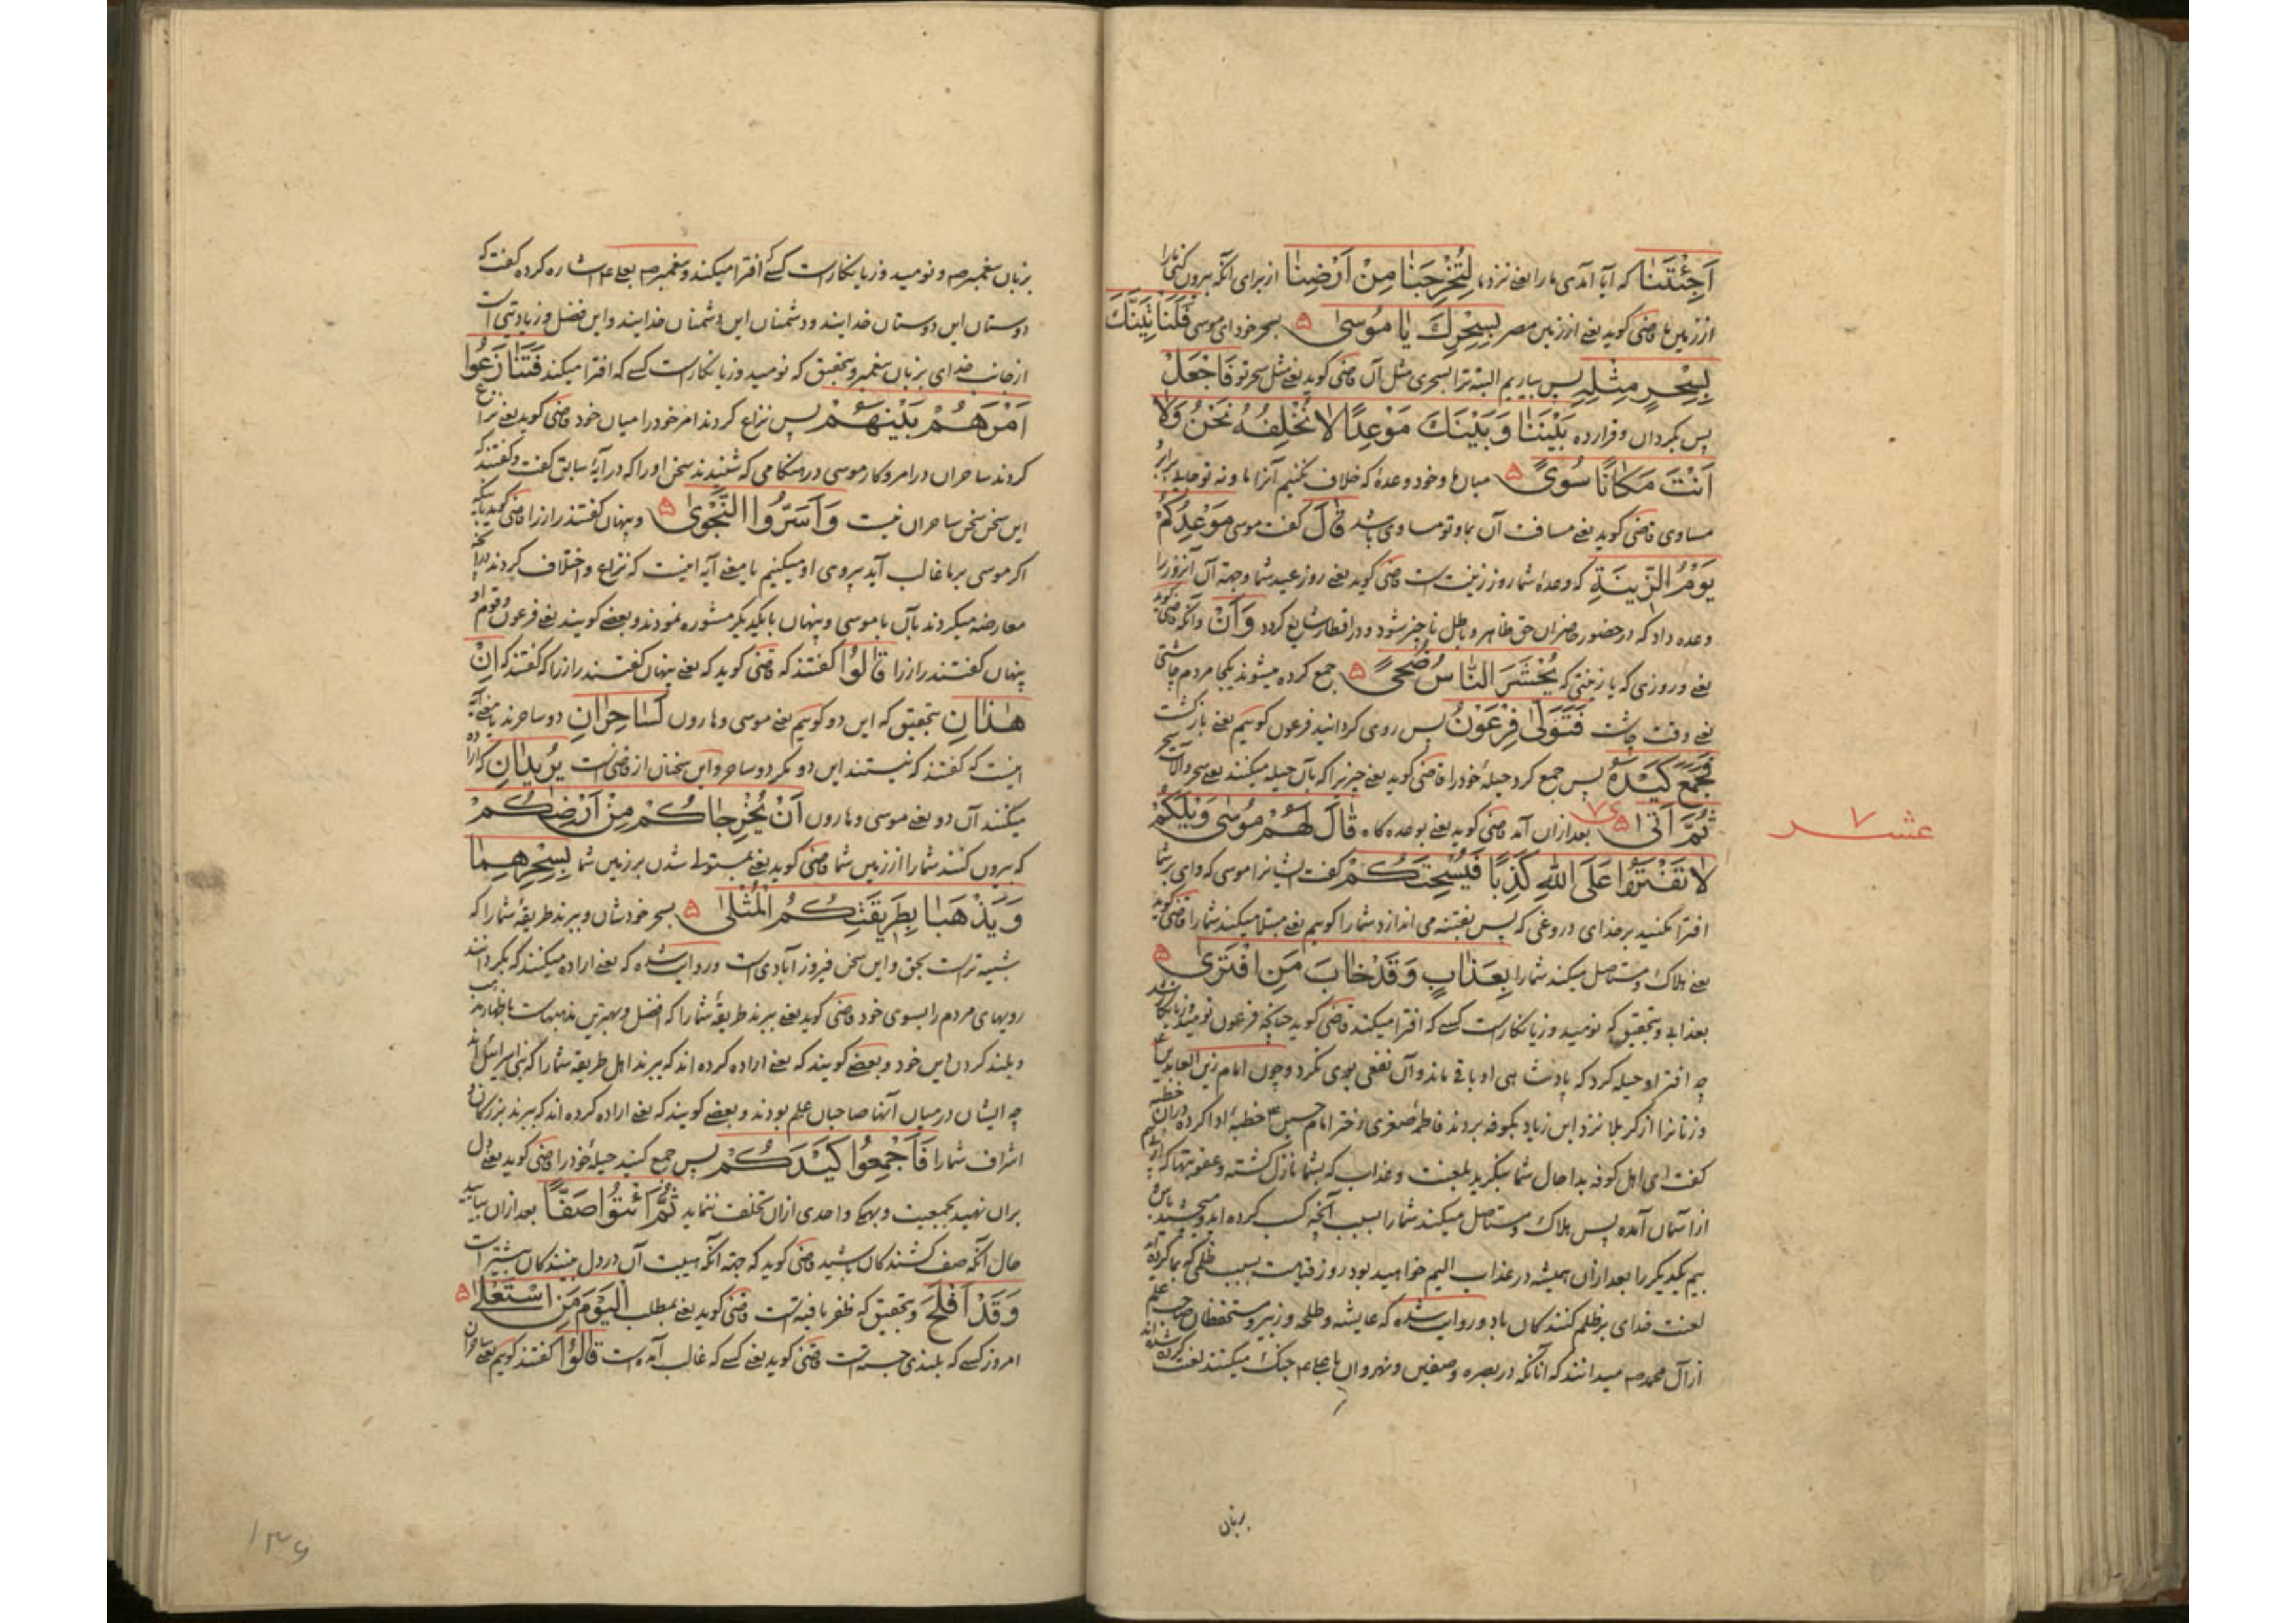 اَجِئْتَنَا که آیا آمدی ما را یعنی نزد ما لِتُخْرِجَنَا مِنْ اَرْضِنَا از برای آنکه بیرون کنی ما را
از زمین ما قاضی کوید یعنی از زمین مصر بِسِحْرِكَ یَا مُوسٰی ۵ بسحر خود ای موسی فَلَنَاْتِیَنَّكَ
بِسِحْرٍ مِثْلِهِ پس بیاریم البته ترا بسحری مثل آن قاضی کوید یعنی مثل سحر تو فَاجْعَلْ
پس بکردان و قرار ده بَیْنَنَا وَبَیْنَكَ مَوْعِدًا لَا نُخْلِفُهُ نَحْنُ وَلَا
اَنْتَ مَکَانًا سُوًی ۵ میان ما و خود وعدهٔ که خلاف نکنیم آنرا ما و نه تو
مساوی قاضی کوید یعنی مسافت آن بما و تو مساوی باشد قَالَ کفت موسی مَوْعِدُکُمْ
یَوْمُ الزِّینَةِ که وعدهٔ شما روز زینت است قاضی کوید یعنی روز عید شما و جهة آن آنروز را
وعده داد که در حضور حاضران حق ظاهر و باطل ناچیز شود و در اقطار شایع کردد وَاَنْ و آنکه قاضی کوید
یعنی و روزی که یا زینتی که یُحْشَرَ النَّاسُ ضُحًی ۵ جمع کرده میشوند یکجا مردم چاشتی
یعنی وقت چاشت فَتَوَلّٰی فِرْعَوْنُ پس روی کردانید فرعون کوییم یعنی بازکشت
فَجَمَعَ کَیْدَهُ پس جمع کرد حیلهٔ خود را قاضی کوید یعنی چیزیرا که بآن حیله میکنند یعنی سحر و آلات سحر
ثُمَّ اَتٰی ۵ بعد از آن آمد قاضی کوید یعنی بوعده کاه قَالَ لَهُمْ مُوسٰی وَیْلَکُمْ
عشر ۷
لَا تَفْتَرُوا عَلَی اللّٰهِ کَذِبًا فَیُسْحِتَکُمْ کفت ایشانرا موسی که وای بر شما
افترا مکنید بر خدای دروغی که پس بفتنه می اندازد شما را کوییم یعنی مبتلا میکند شما را قاضی کوید
یعنی هلاک و مستاصل میکند شما را بِعَذَابٍ وَقَدْ خَابَ مَنِ افْتَرٰی ۵
بعذابی و بتحقیق که نومید و زیانکار است کسی که افترا میکند قاضی کوید چنانچه فرعون نومید و زیانکار شد
چه افترا و حیله کرد که پادشاهی او باقی ماند و آن نفعی بوی نکرد و چون امام زین العابدین
و زنانرا از کربلا نزد ابن زیاد بکوفه بردند فاطمهٔ صغری دختر امام حسین ع خطبهٔ ادا کرد و در آن خطبه
کفت ای اهل کوفه بدا حال شما بنکرید بلعنت و عذاب که بشما نازل کشته و عقوبتها که
از آسمان آمده پس هلاک و مستاصل میکند شما را بسبب آنچه کسب کرده اید و میچشید باس
بیم یکدیکر را بعد از آن همیشه در عذاب الیم خواهید بود روز قیامت بسبب ظلمی که بما کرده اید
لعنت خدای بر ظلم کنندکان باد و روایت شده که عایشه و طلحه و زبیر و مستحفظان
از آل محمد ص میدانند که آنانکه در بصره و صفین و نهروان با علی ع جنک میکنند لعنت کرده شده اند
بزبان
بزبان پیغمبر ص و نومید و زیانکار است کسی که افترا میکند و پیغمبر ص بعلی ع اشاره کرده کفت که
دوستان این دوستان خدایند و دشمنان این دشمنان خدایند و این فضل و زیادتی است
از جانب خدای بزبان پیغمبر و بتحقیق که نومید و زیانکار است کسی که افترا میکند فَتَنَازَعُوا
اَمْرَهُمْ بَیْنَهُمْ پس نزاع کردند امر خود را میان خود قاضی کوید یعنی نزاع
کردند ساحران در امر و کار موسی در هنکامی که شنیدند سخن او را که در آیهٔ سابق کفت و کفتند که
این سخن سخن ساحران نیست وَاَسَرُّوا النَّجْوٰی ۵ و پنهان کفتند راز را قاضی کوید باینکه
اکر موسی بر ما غالب آید پیروی او میکنیم یا معنی آیه اینست که نزاع و اختلاف کردند در آنچه
معارضه میکردند بآن با موسی و پنهان با یکدیکر مشوره نمودند و بعضی کویند یعنی فرعون و قوم او
پنهان کفتند راز را قَالُوا کفتند که قاضی کوید که یعنی پنهان کفتند راز را که کفتند که اِنْ
هٰذَانِ بتحقیق که این دو کوییم یعنی موسی و هارون لَسَاحِرَانِ دو ساحرند یا معنی آیه
اینست که کفتند که نیستند این دو مکر دو ساحر و این سخنان از قاضی است یُرِیدَانِ که اراده
میکنند آن دو یعنی موسی و هارون اَنْ یُخْرِجَاکُمْ مِنْ اَرْضِکُمْ
که بیرون کنند شما را از زمین شما قاضی کوید یعنی بمستولی شدن بر زمین شما بِسِحْرِهِمَا
وَیَذْهَبَا بِطَرِیقَتِکُمُ الْمُثْلٰی ۵ بسحر خودشان و ببرند طریقهٔ شما را که
شبیه تر است بحق و این سخن فیروزآبادی است و روایت شده که یعنی اراده میکنند که بکردانند
رویهای مردم را بسوی خود قاضی کوید یعنی ببرند طریقهٔ شما را که افضل و بهترین مذهبهاست باظهار مذهب
و بلند کردن دین خود و بعضی کویند که یعنی اراده کرده اند که ببرند اهل طریقه شما را که بنی اسرائیل اند
چه ایشان در میان آنها صاحبان علم بودند و بعضی کویند که یعنی اراده کرده اند که ببرند بزرکان و
اشراف شما را فَاَجْمِعُوا کَیْدَکُمْ پس جمع کنید حیلهٔ خود را قاضی کوید یعنی دل
بران نهید بجمعیت و بهمکی واحدی از ان تخلف ننماید ثُمَّ ائْتُوا صَفًّا بعد از ان بیایید
حال آنکه صف کشندکان باشید قاضی کوید که جهة آنکه هیبت آن در دل بینندکان بیشتر است
وَقَدْ اَفْلَحَ و بتحقیق که ظفر یافته است قاضی کوید یعنی بمطلب الْیَوْمَ مَنِ اسْتَعْلٰی ۵
امروز کسی که بلندی جسته است قاضی کوید یعنی کسی که غالب آمده است قَالُوا کفتند کوییم یعنی ساحران
۱۳۶